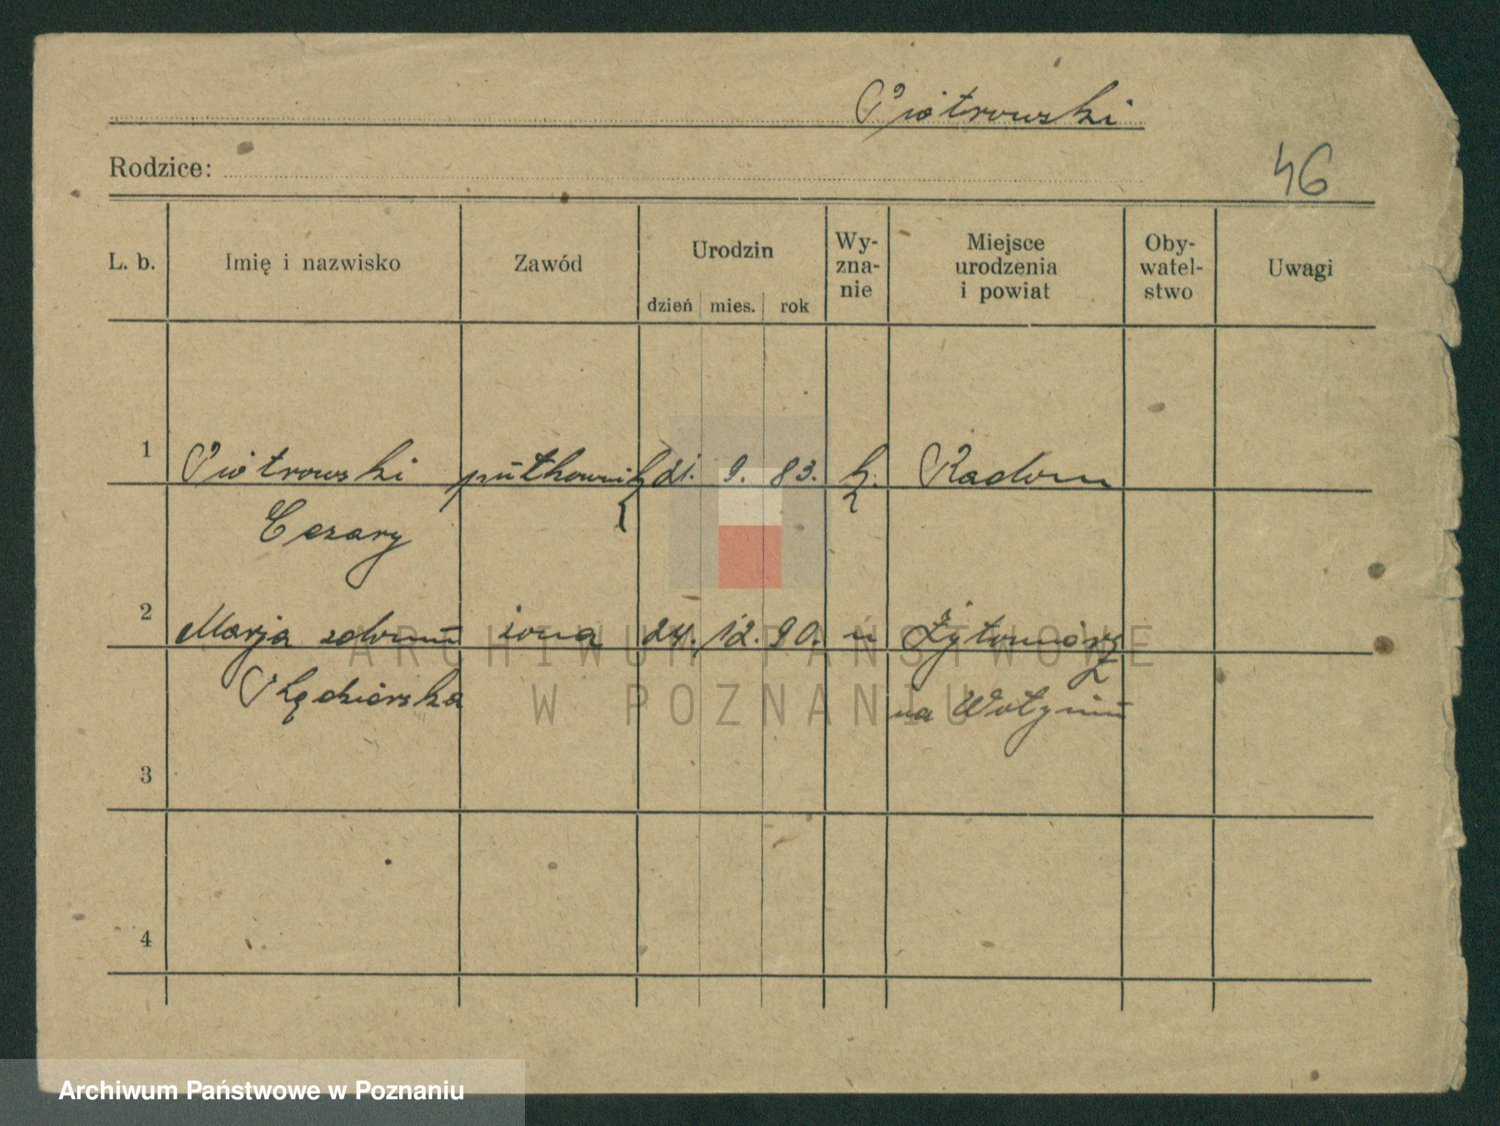 Piotrowski
Rodzice:
46
L. b. Imię i nazwisko Zawód Urodzin dzień mies. rok Wy-zna-nie Miejsce urodzenia i powiat Oby-watel-stwo Uwagi
1 Piotrowski pułkownik 21. 9. 83. k. Radom
Cezary
2 Marja żona 24. 12. 90. Żytomierz
na Wołyniu
3
4
ARCHIWUM PAŃSTWOWE
W POZNANIU
Archiwum Państwowe w Poznaniu